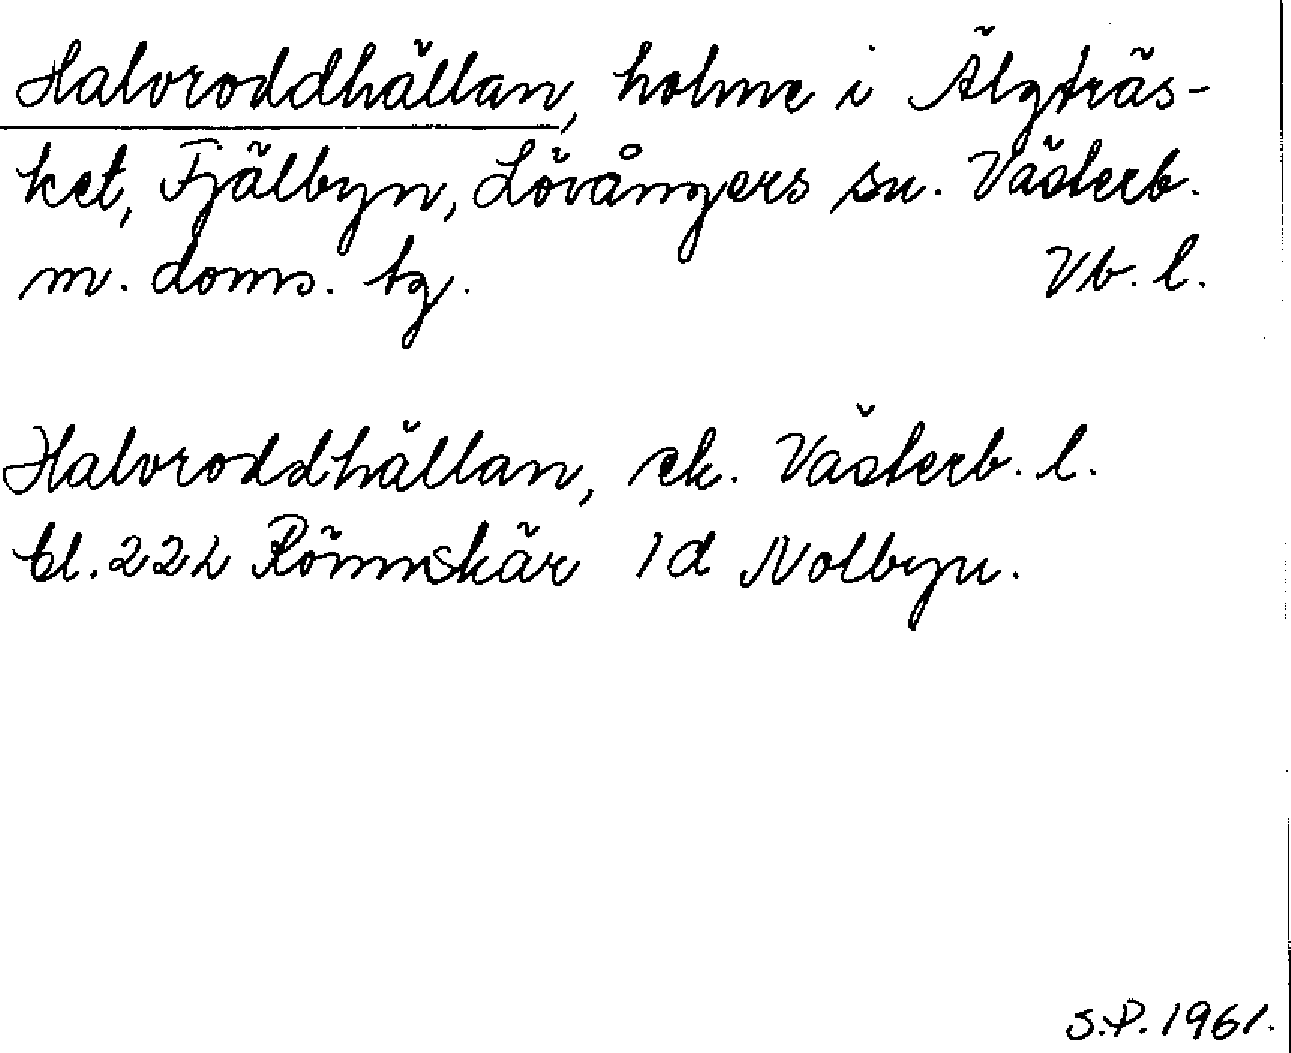 Halvroddhällan, holme i Älgträs-
ket, Fjälbyn, Lövångers sn. Västerb.
m. doms. tg. Vb. l.
Halvroddhällan, ek. Västerb. l.
bl. 22 L Rönnskär 1d Nolbyn.
S.P. 1961.